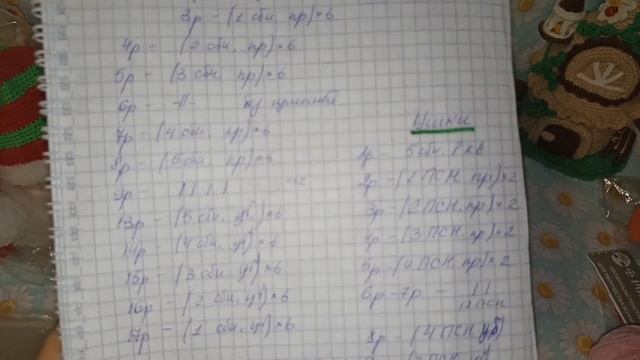 3р - (1 сбн. пр)×6
4р - (2 сбн, пр)×6
5р - (3 сбн, пр)×6
6р - -//- без
7р - (4 сбн, пр)×6
8р - (5 сбн, пр)×6
9р -
13р - (5 сбн, уб)×6
14р - (4 сбн, уб)×6
15р - (3 сбн, уб)×6
16р - (2 сбн, уб)×6
17р - (1 сбн, уб)×6
Ушки
1р - 5 сбн. в КА
2р - (1 ПСН, пр)×2
3р - (2 ПСН, пр)×2
4р - (3 ПСН, пр)×2
5р - (4 ПСН, пр)×2
6р-7р -
12 ПСН
8р - (4 ПСН, уб)